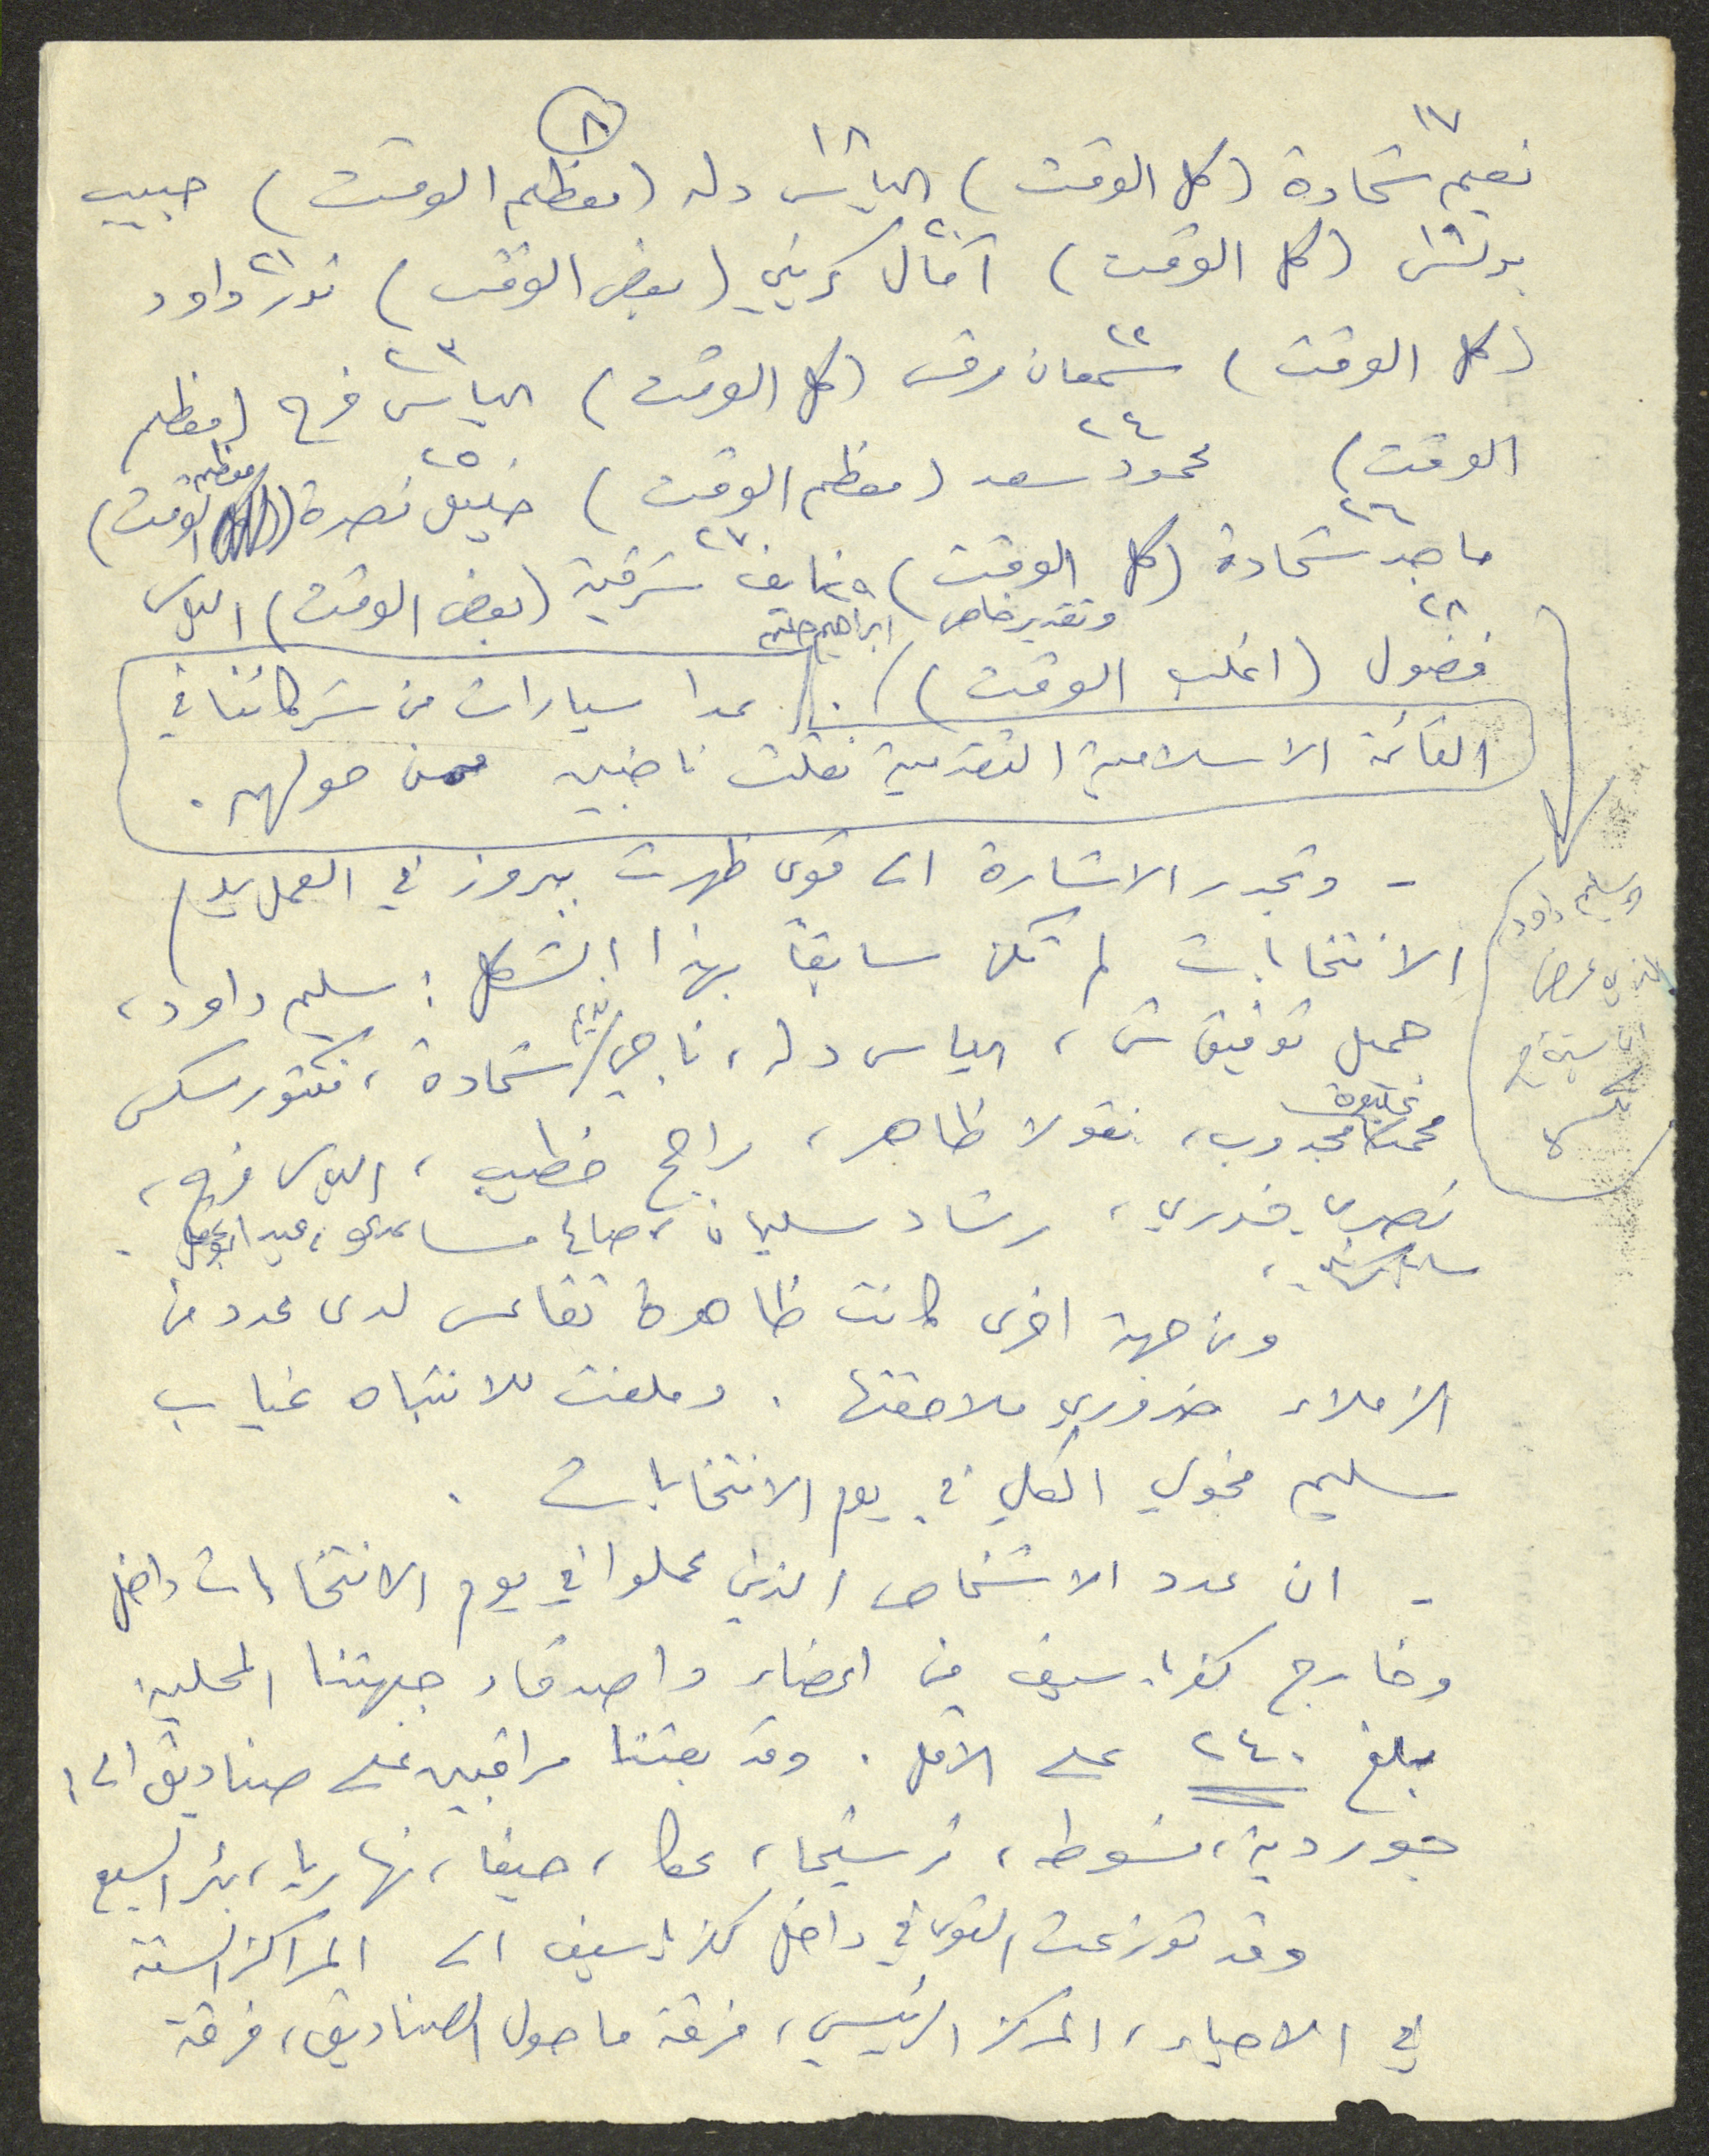 ٨
١٧ ١٨
نعيم شحادة (كل الوقت) الياس دله (معظم الوقت) حبيب
١٩ ٢٠ ٢١
بولس (كل الوقت) آمال كريني (بعض الوقت) نور داود
٢٢ ٢٣
(كل الوقت) سمعان مرقس (كل الوقت) الياس فرح (معظم
٢٤ ٢٥
الوقت) محمود سعد (معظم الوقت) خليل نصرة (معظم الوقت)
٢٦ ٢٧
ماجد شحادة (كل الوقت) ونايف شرقية (بعض الوقت) الياس
٢٨ وتقدير خاص ابراهيم حليم
فضول (اغلب الوقت). عدا سيارات من شركائنا في
القائمة الاسلامية التقدمية نقلت ناخبيه ممن حولهم.
- وتجدر الاشارة الى قوى ظهرت ببروز في العمل يوم
الانتخابات لم تكن سابقاً بهذا الشكل: سليم داود،
جميل توفيق ش، الياس دله، ناجي نديم شحادة، فكتور سكس
محمد خليفة مجدوب، نقولا ظاهر، راجح خطيب، الياس فرح،
نصري خدري، رشاد سليمان، صالح مساعدي، عبد
وسليم داود
الذي عرض
ومن جهة اخرى كانت ظاهرة تقاعس لدى عدد من
الزملاء ضروري ملاحقتها. وملفت للانتباه غياب
سليم مخولي الكلي في يوم الانتخابات.
- ان عدد الاشخاص الذين عملوا في يوم الانتخابات داخل
وخارج كفرياسيف من اعضاء واصدقاء جبهتنا المحلية
بلغ ٢٤٠ على الاقل. وقد بعثنا مراقبين على صناديق الى:
جوردية، فسوطه، ترشيحا، عكا، حيفا، نهاريا، بئر السبع
وقد توزعت القوى في داخل كفرياسيف الى المراكز الستة
في الاحياء، المركز الرئيسي، فرقة ما حول الصناديق، فرقة